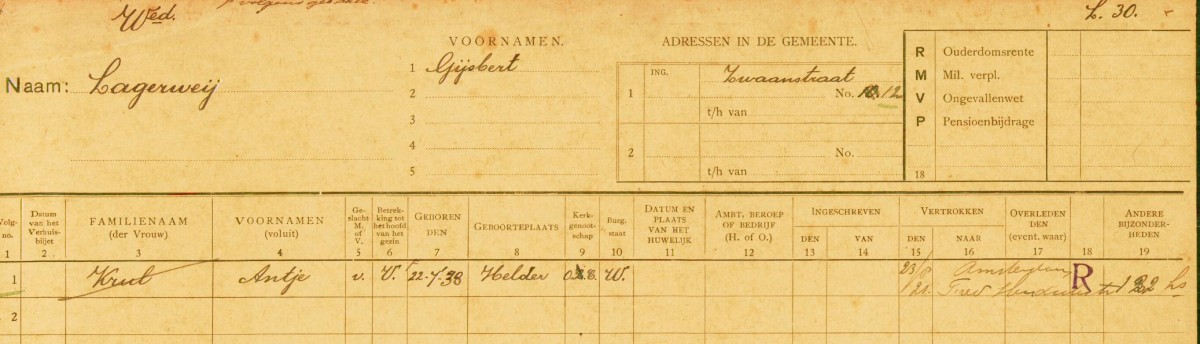 Wed.
L. 30.
VOORNAMEN.
ADRESSEN IN DE GEMEENTE.
Naam: Lagerweij
1 Gijsbert
2
3
4
5
ING.
1 Zwaanstraat
No. 10. 12
t/h van
2 No.
t/h van
R Ouderdomsrente
M Mil. verpl.
V Ongevallenwet
P Pensioenbijdrage
18
Volg-no. 1
Datum van het Verhuis-biljet 2
FAMILIENAAM (der Vrouw) 3
VOORNAMEN (voluit) 4
Ge-slacht M. of V. 5
Betrek-king tot het hoofd van het gezin 6
GEBOREN DEN 7
GEBOORTEPLAATS 8
Kerk-genoot-schap 9
Burg. staat 10
DATUM EN PLAATS VAN HET HUWELIJK 11
AMBT, BEROEP OF BEDRIJF (H. of O.) 12
INGESCHREVEN
DEN 13
VAN 14
VERTROKKEN
DEN 15
NAAR 16
OVERLEDEN DEN (event. waar) 17
18
ANDERE BIJZONDER-HEDEN 19
1 Krut Antje v. W. 22-7-38 Helder W. 23/8 Amsterdam R
21. Fred Hendrikstr hs
2